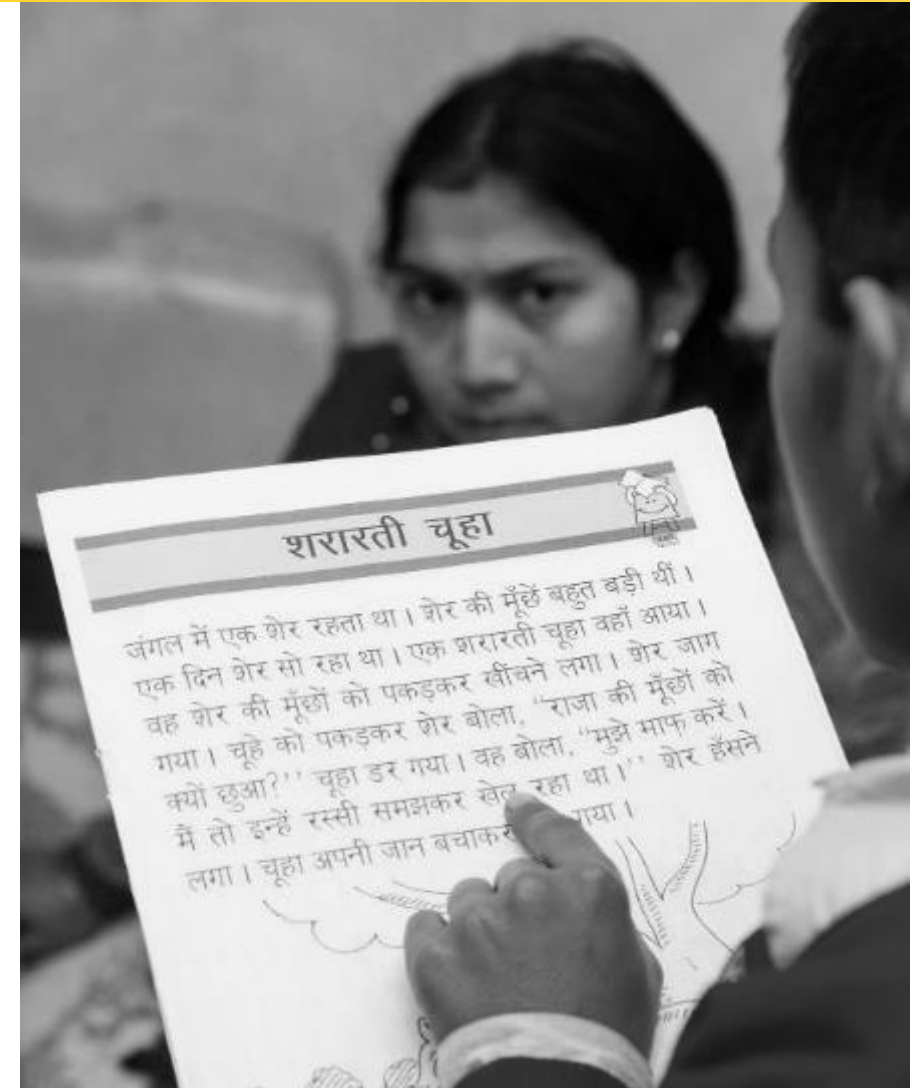 शरारती चूहा
जंगल में एक शेर रहता था। शेर की मूँछें बहुत बड़ी थीं।
एक दिन शेर सो रहा था। एक शरारती चूहा वहाँ आया।
वह शेर की मूँछों को पकड़कर खींचने लगा। शेर जाग
गया। चूहे को पकड़कर शेर बोला, “राजा की मूँछों को
क्यों छुआ?'' चूहा डर गया। वह बोला, “मुझे माफ करें।
मैं तो इन्हें रस्सी समझकर खेल रहा था।'' शेर हँसने
लगा। चूहा अपनी जान बचाकर गया।